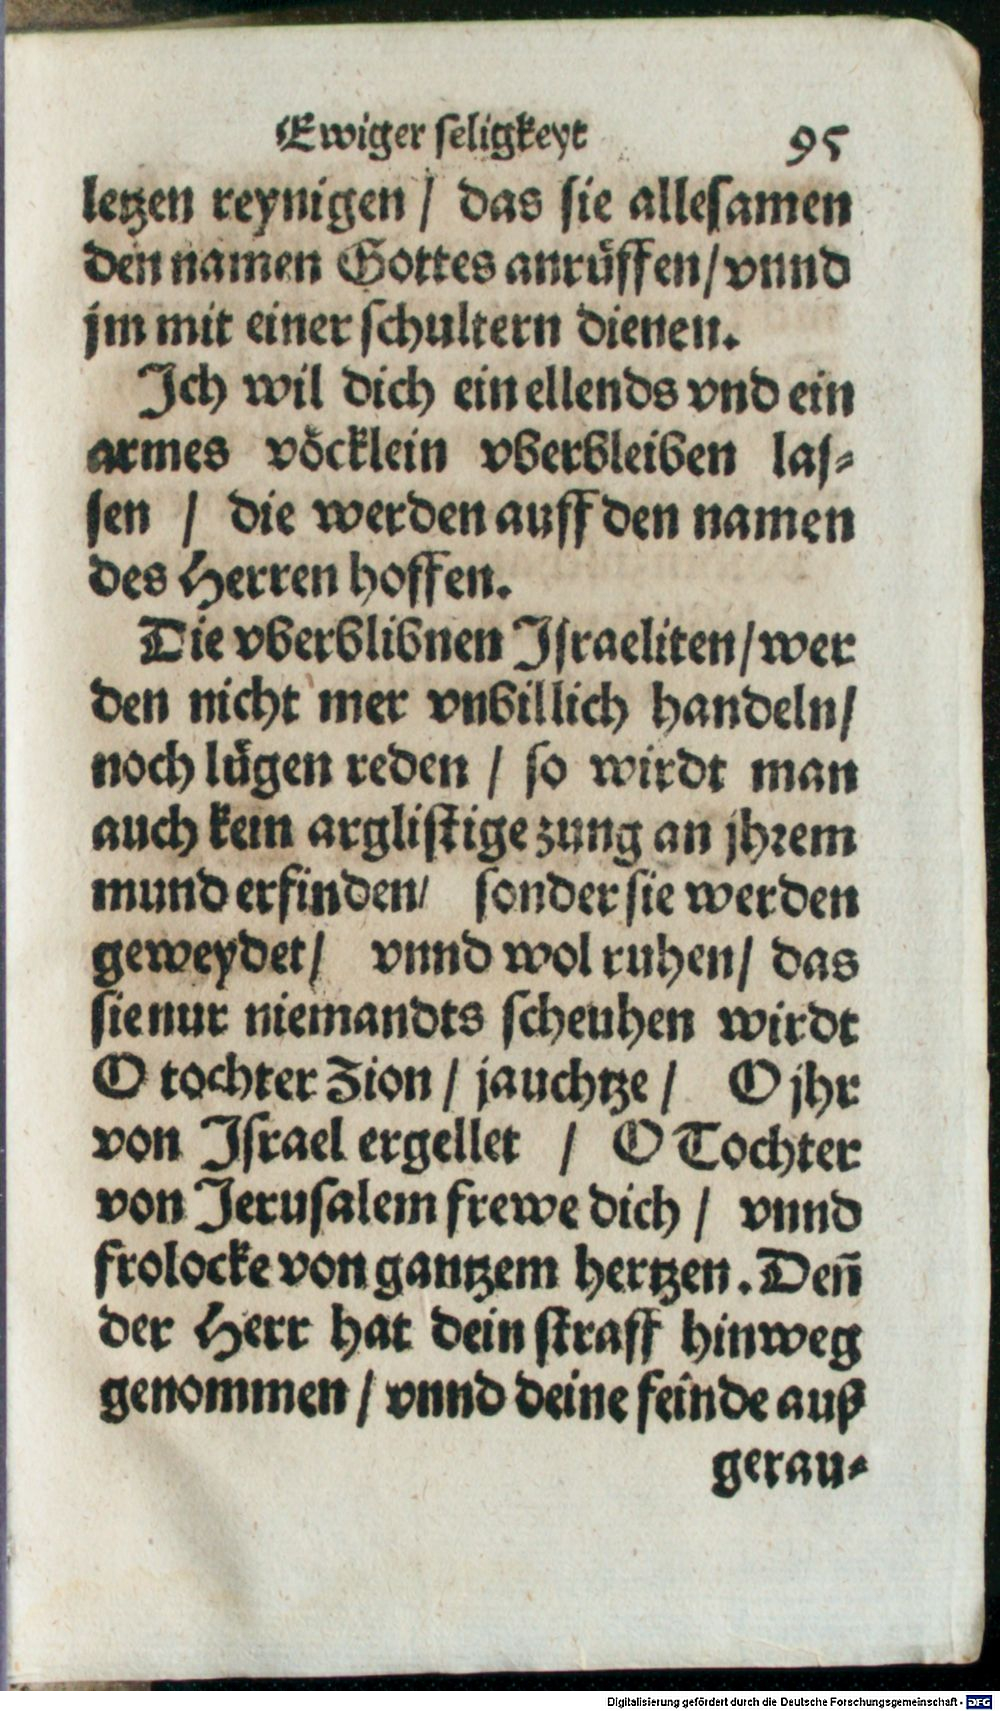 Ewiger seligkeyt 95
letzen reynigen / das sie allesamen
den namen Gottes anrůffen / vnnd
jm mit einer schultern dienen.
Ich wil dich ein ellends vnd ein
armes vöcklein vberbleiben las-
sen / die werden auff den namen
des Herren hoffen.
Die vberblibnen Israeliten / wer
den nicht mer vnbillich handeln /
noch lůgen reden / so wirdt man
auch kein arglistige zung an jhrem
mund erfinden / sonder sie werden
geweydet / vnnd wol ruhen / das
sie nur niemandts scheuhen wirdt
O tochter Zion / jauchtze / O jhr
von Israel ergellet / O Tochter
von Jerusalem frewe dich / vnnd
frolocke von gantzem hertzen. Deñ
der Herr hat dein straff hinweg
genommen / vnnd deine feinde auß
gerau-
Digitalisierung gefördert durch die Deutsche Forschungsgemeinschaft - DFG